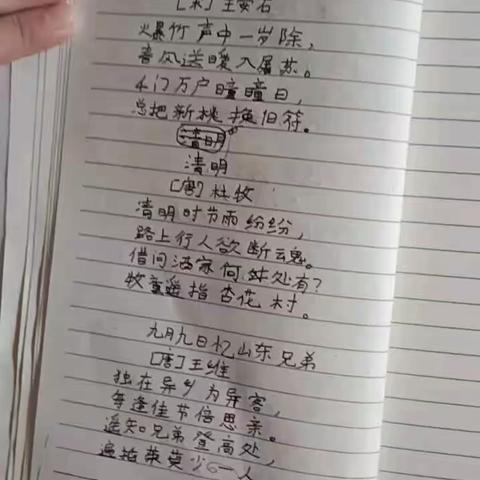 [宋]王安石
爆竹声中一岁除，
春风送暖入屠苏。
千门万户曈曈日，
总把新桃换旧符。
清明
清明
[唐]杜牧
清明时节雨纷纷，
路上行人欲断魂。
借问酒家何处有？
牧童遥指杏花村。
九月九日忆山东兄弟
[唐]王维
独在异乡为异客，
每逢佳节倍思亲。
遥知兄弟登高处，
遍插茱萸少一人